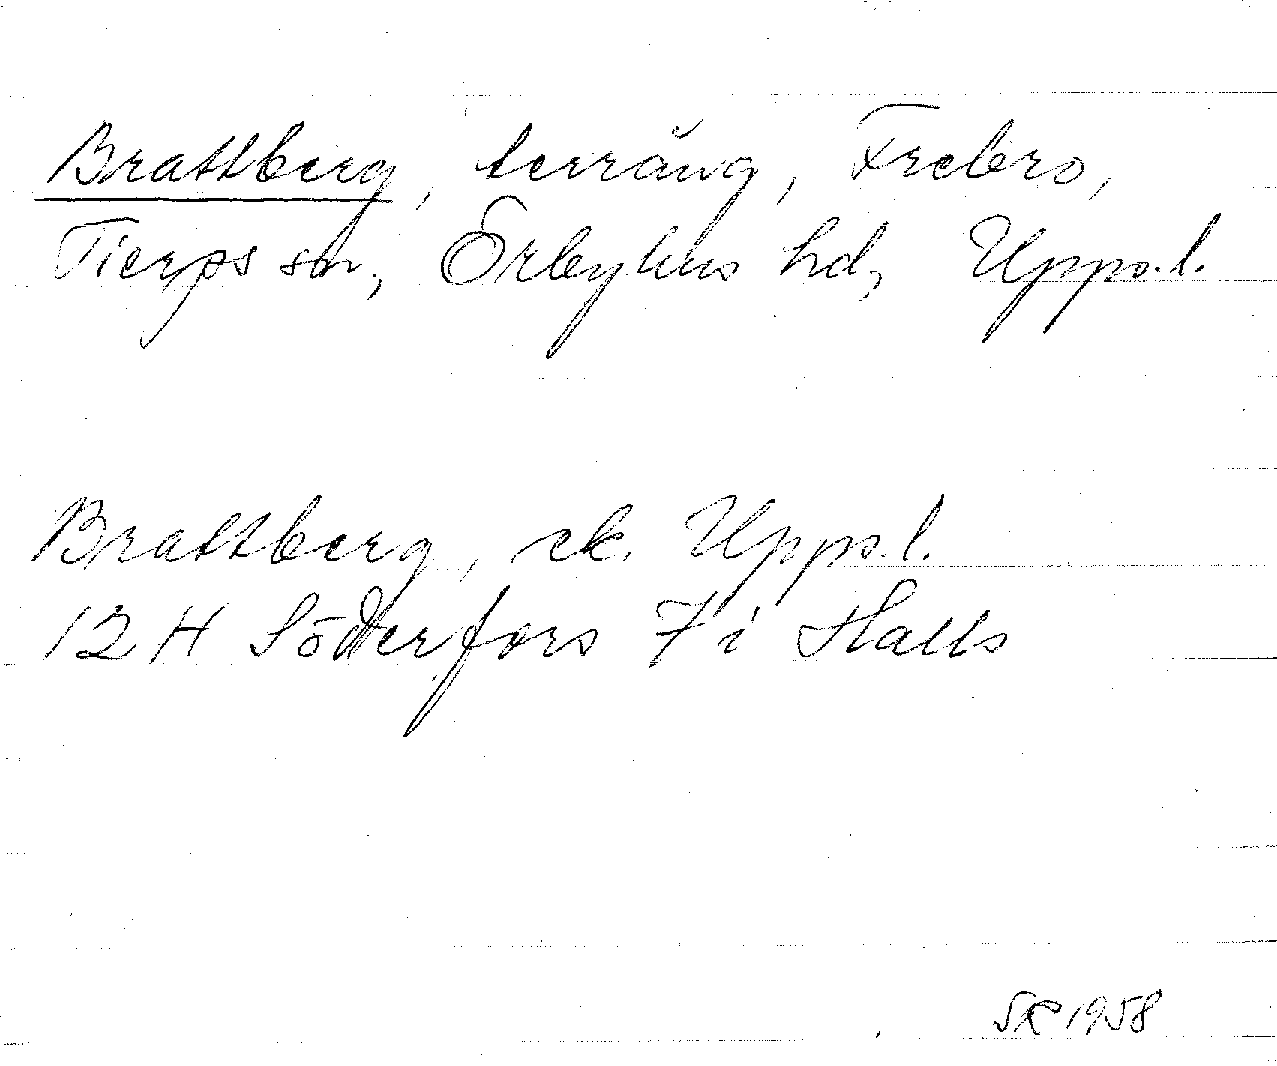 Brattberg, terräng, Frebro,
Tierps sn, Örbyhus hd, Upps.l.
Brattberg, ek. Upps.l.
12 H Söderfors 7 i Halls
1958